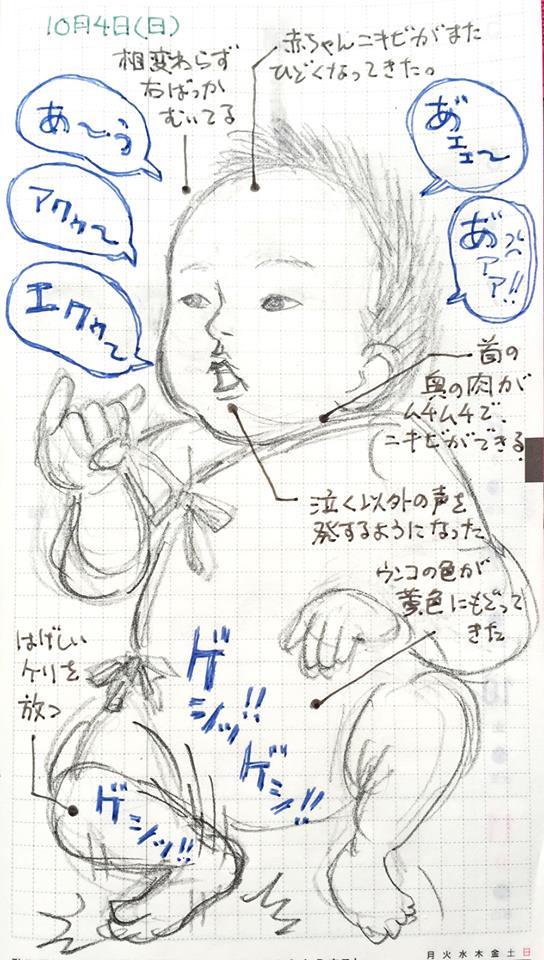 10月4日(日)
相変わらず
右ばっか
むいてる
赤ちゃんニキビがまた
ひどくなってきた。
あ〜う
アウゥ〜
エクゥ〜
あ゛ェェ〜
あ゛ァァ!!
首の
奥の肉が
ムチムチで、
ニキビができる。
泣く以外の声を
発するようになった
ウンコの色が
黄色にもどって
きた
はげしい
ケリを
放つ
ゲシッ!!
ゲシッ!!
ゲシッ!!
月火水木金土日